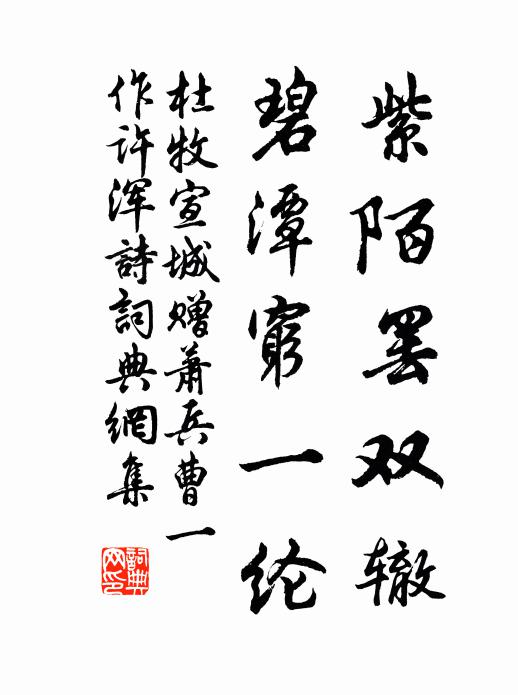 紫陌罢双辙
碧潭窮一纶
杜牧宣城赠萧兵曹一
作许浑詩詞典網集
詞典网印